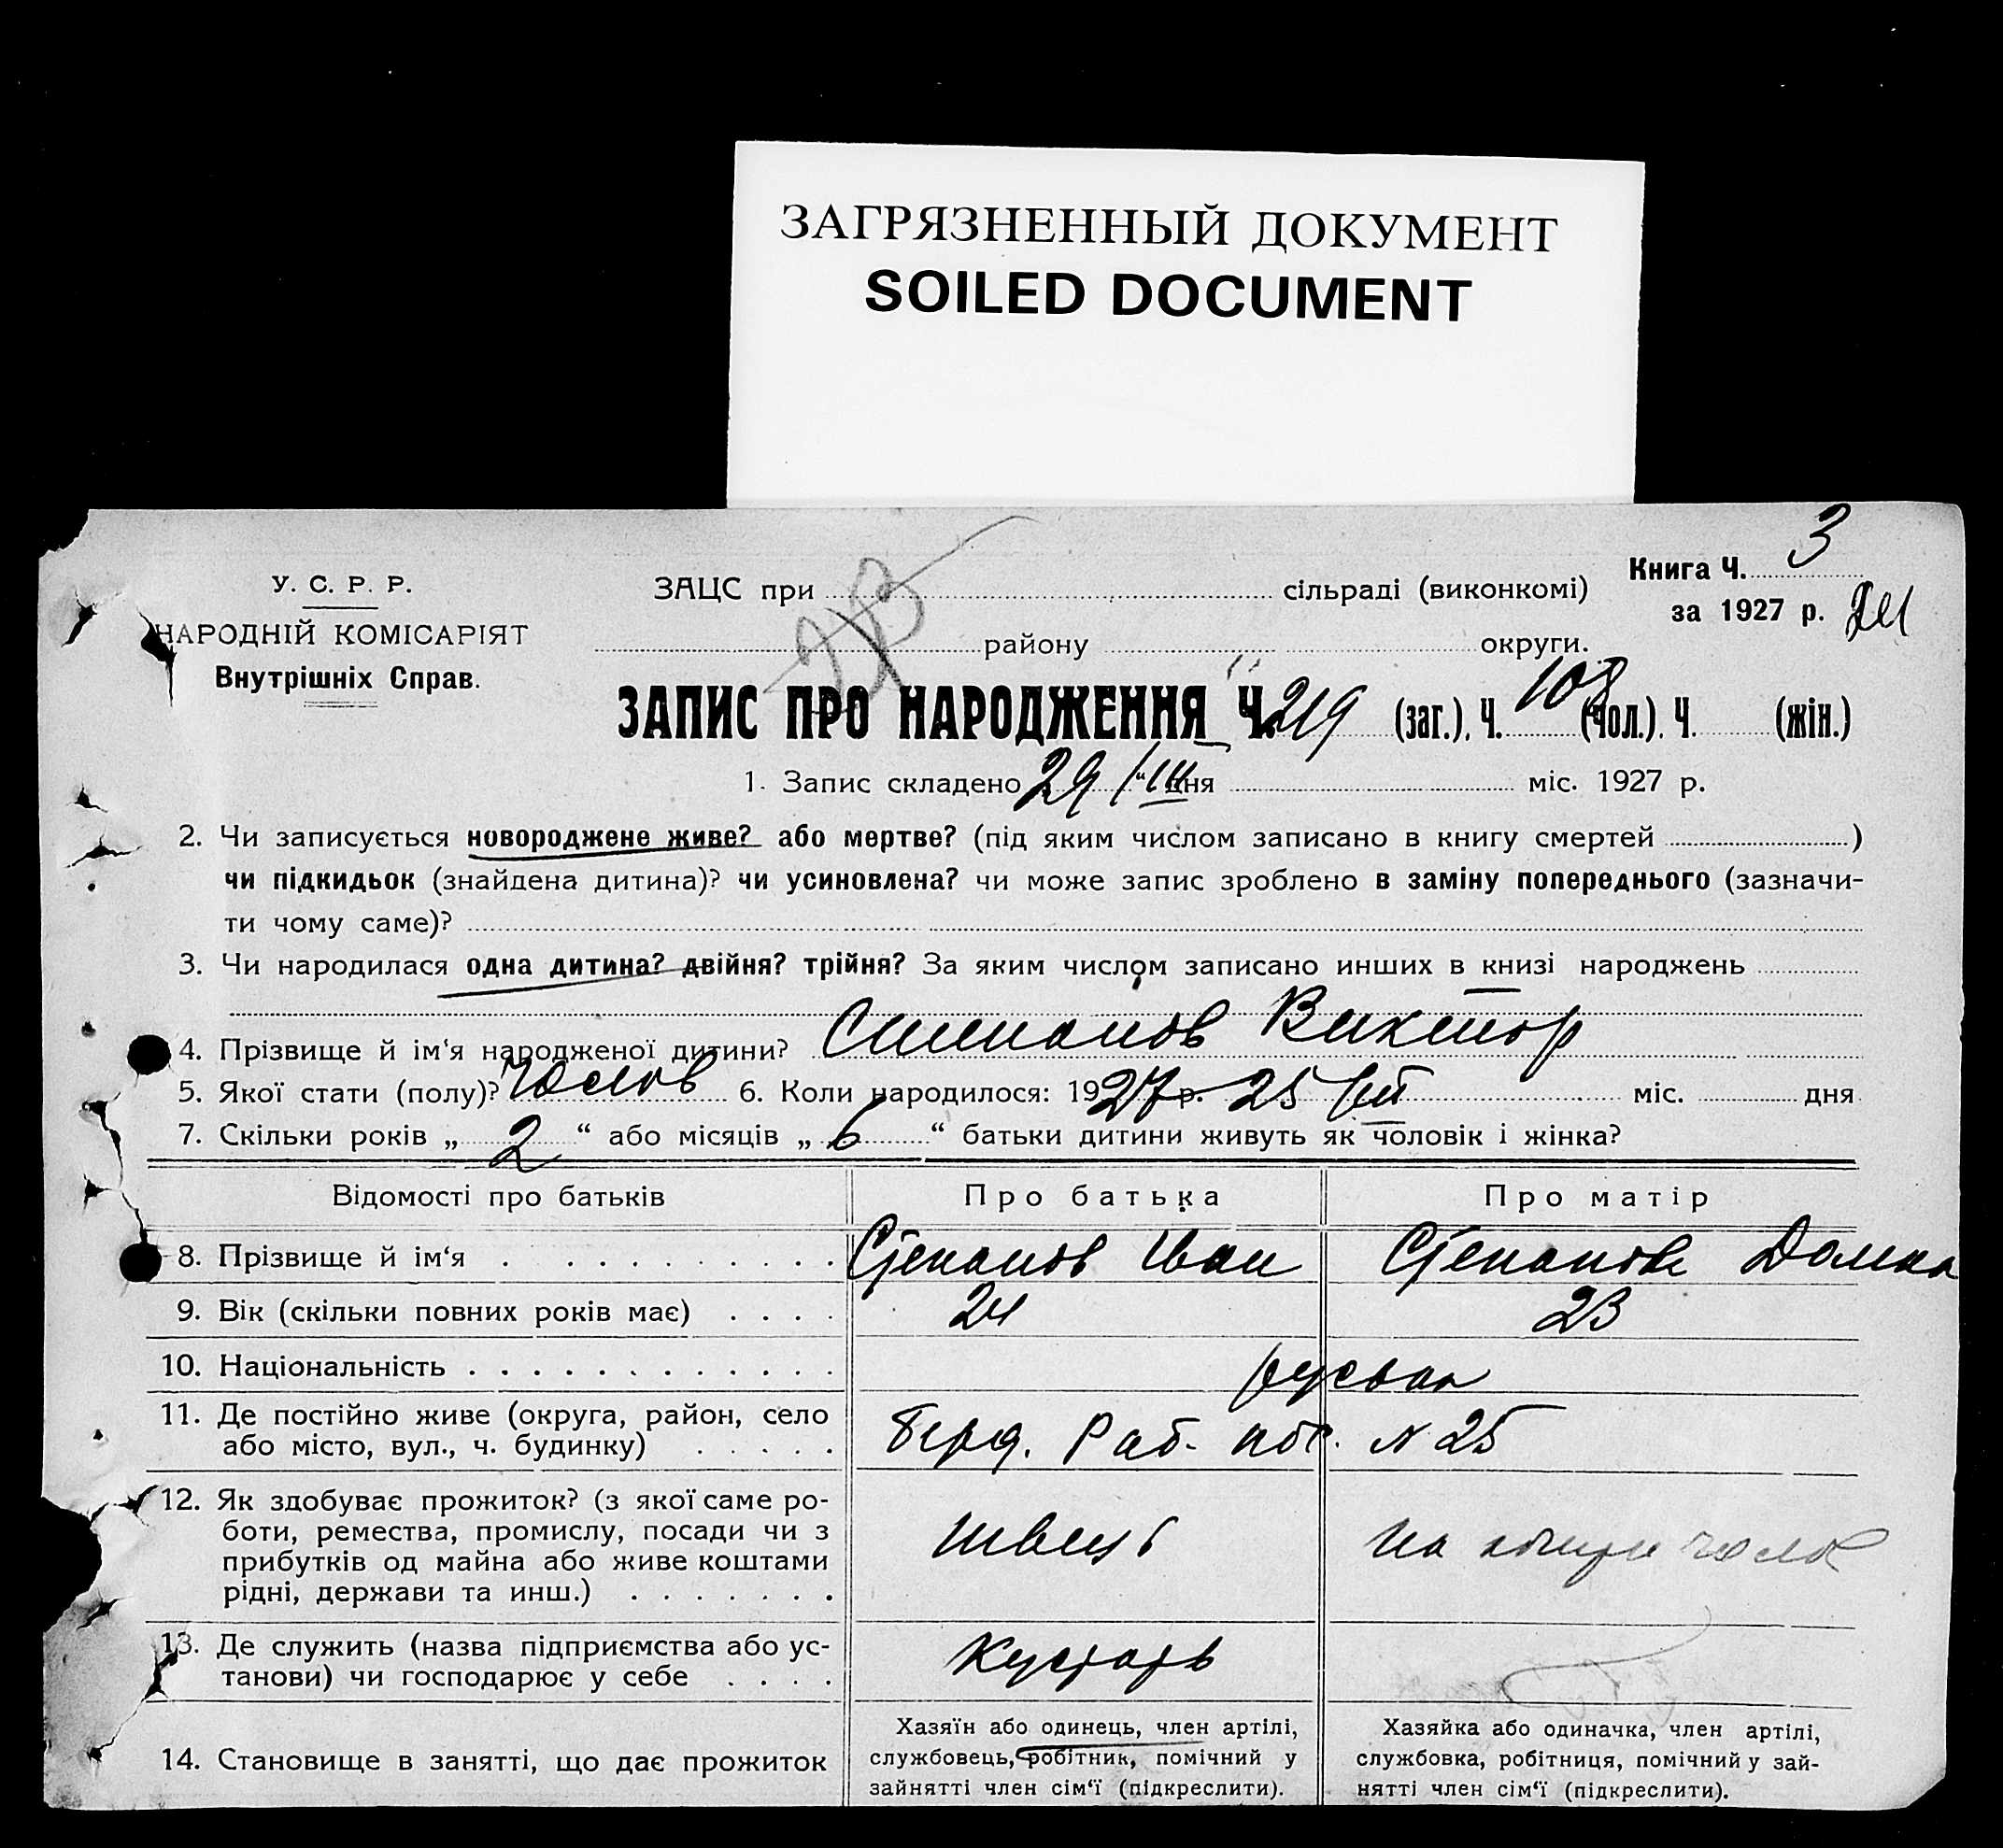 ЗАГРЯЗНЕННЫЙ ДОКУМЕНТ
SOILED DOCUMENT
Книга Ч. 3
У. С. Р. Р.
ЗАЦС при сільраді (виконкомі)
за 1927 р.
НАРОДНІЙ КОМІСАРІЯТ
району округи.
Внутрішніх Справ.
ЗАПИС ПРО НАРОДЖЕННЯ Ч. 219 (заг.), Ч. 108 (чол.). Ч. (жін.)
1. Запис складено 29/III дня міс. 1927 р.
2. Чи записується новороджене живе? або мертве? (під яким числом записано в книгу смертей )
чи підкидьок (знайдена дитина)? чи усиновлена? чи може запис зроблено в заміну попереднього (зазначи-
ти чому саме)?
3. Чи народилася одна дитина? двійня? трійня? За яким числом записано инших в книзі народжень
4. Прізвище й ім‘я народженої дитини? Степанов Виктор
5. Якої стати (полу)? Чолов 6. Коли народилося: 1927 р. 25/III міс. дня
7. Скільки років „ 2 “ або місяців „ 6 “ батьки дитини живуть як чоловік і жінка?
Відомості про батьків Про батька Про матір
8. Прізвище й ім‘я Степанов Иван Степанова Домна
9. Вік (скільки повних років має) 24 23
10. Національність
11. Де постійно живе (округа, район, село
або місто, вул., ч. будинку) Раб. N 25
12. Як здобуває прожиток? (з якої саме ро-
боти, ремества, промислу, посади чи з
прибутків од майна або живе коштами
рідні, держави та инш.) швець на
13. Де служить (назва підприємства або ус-
танови) чи господарює у себе Кустарь
14. Становище в занятті, що дає прожиток
Хазяїн або одинець, член артілі,
службовець, робітник, помічний у
зайнятті член сім‘ї (підкреслити).
Хазяйка або одиначка, член артілі,
службовка, робітниця, помічний у зай-
нятті член сім‘ї (підкреслити).